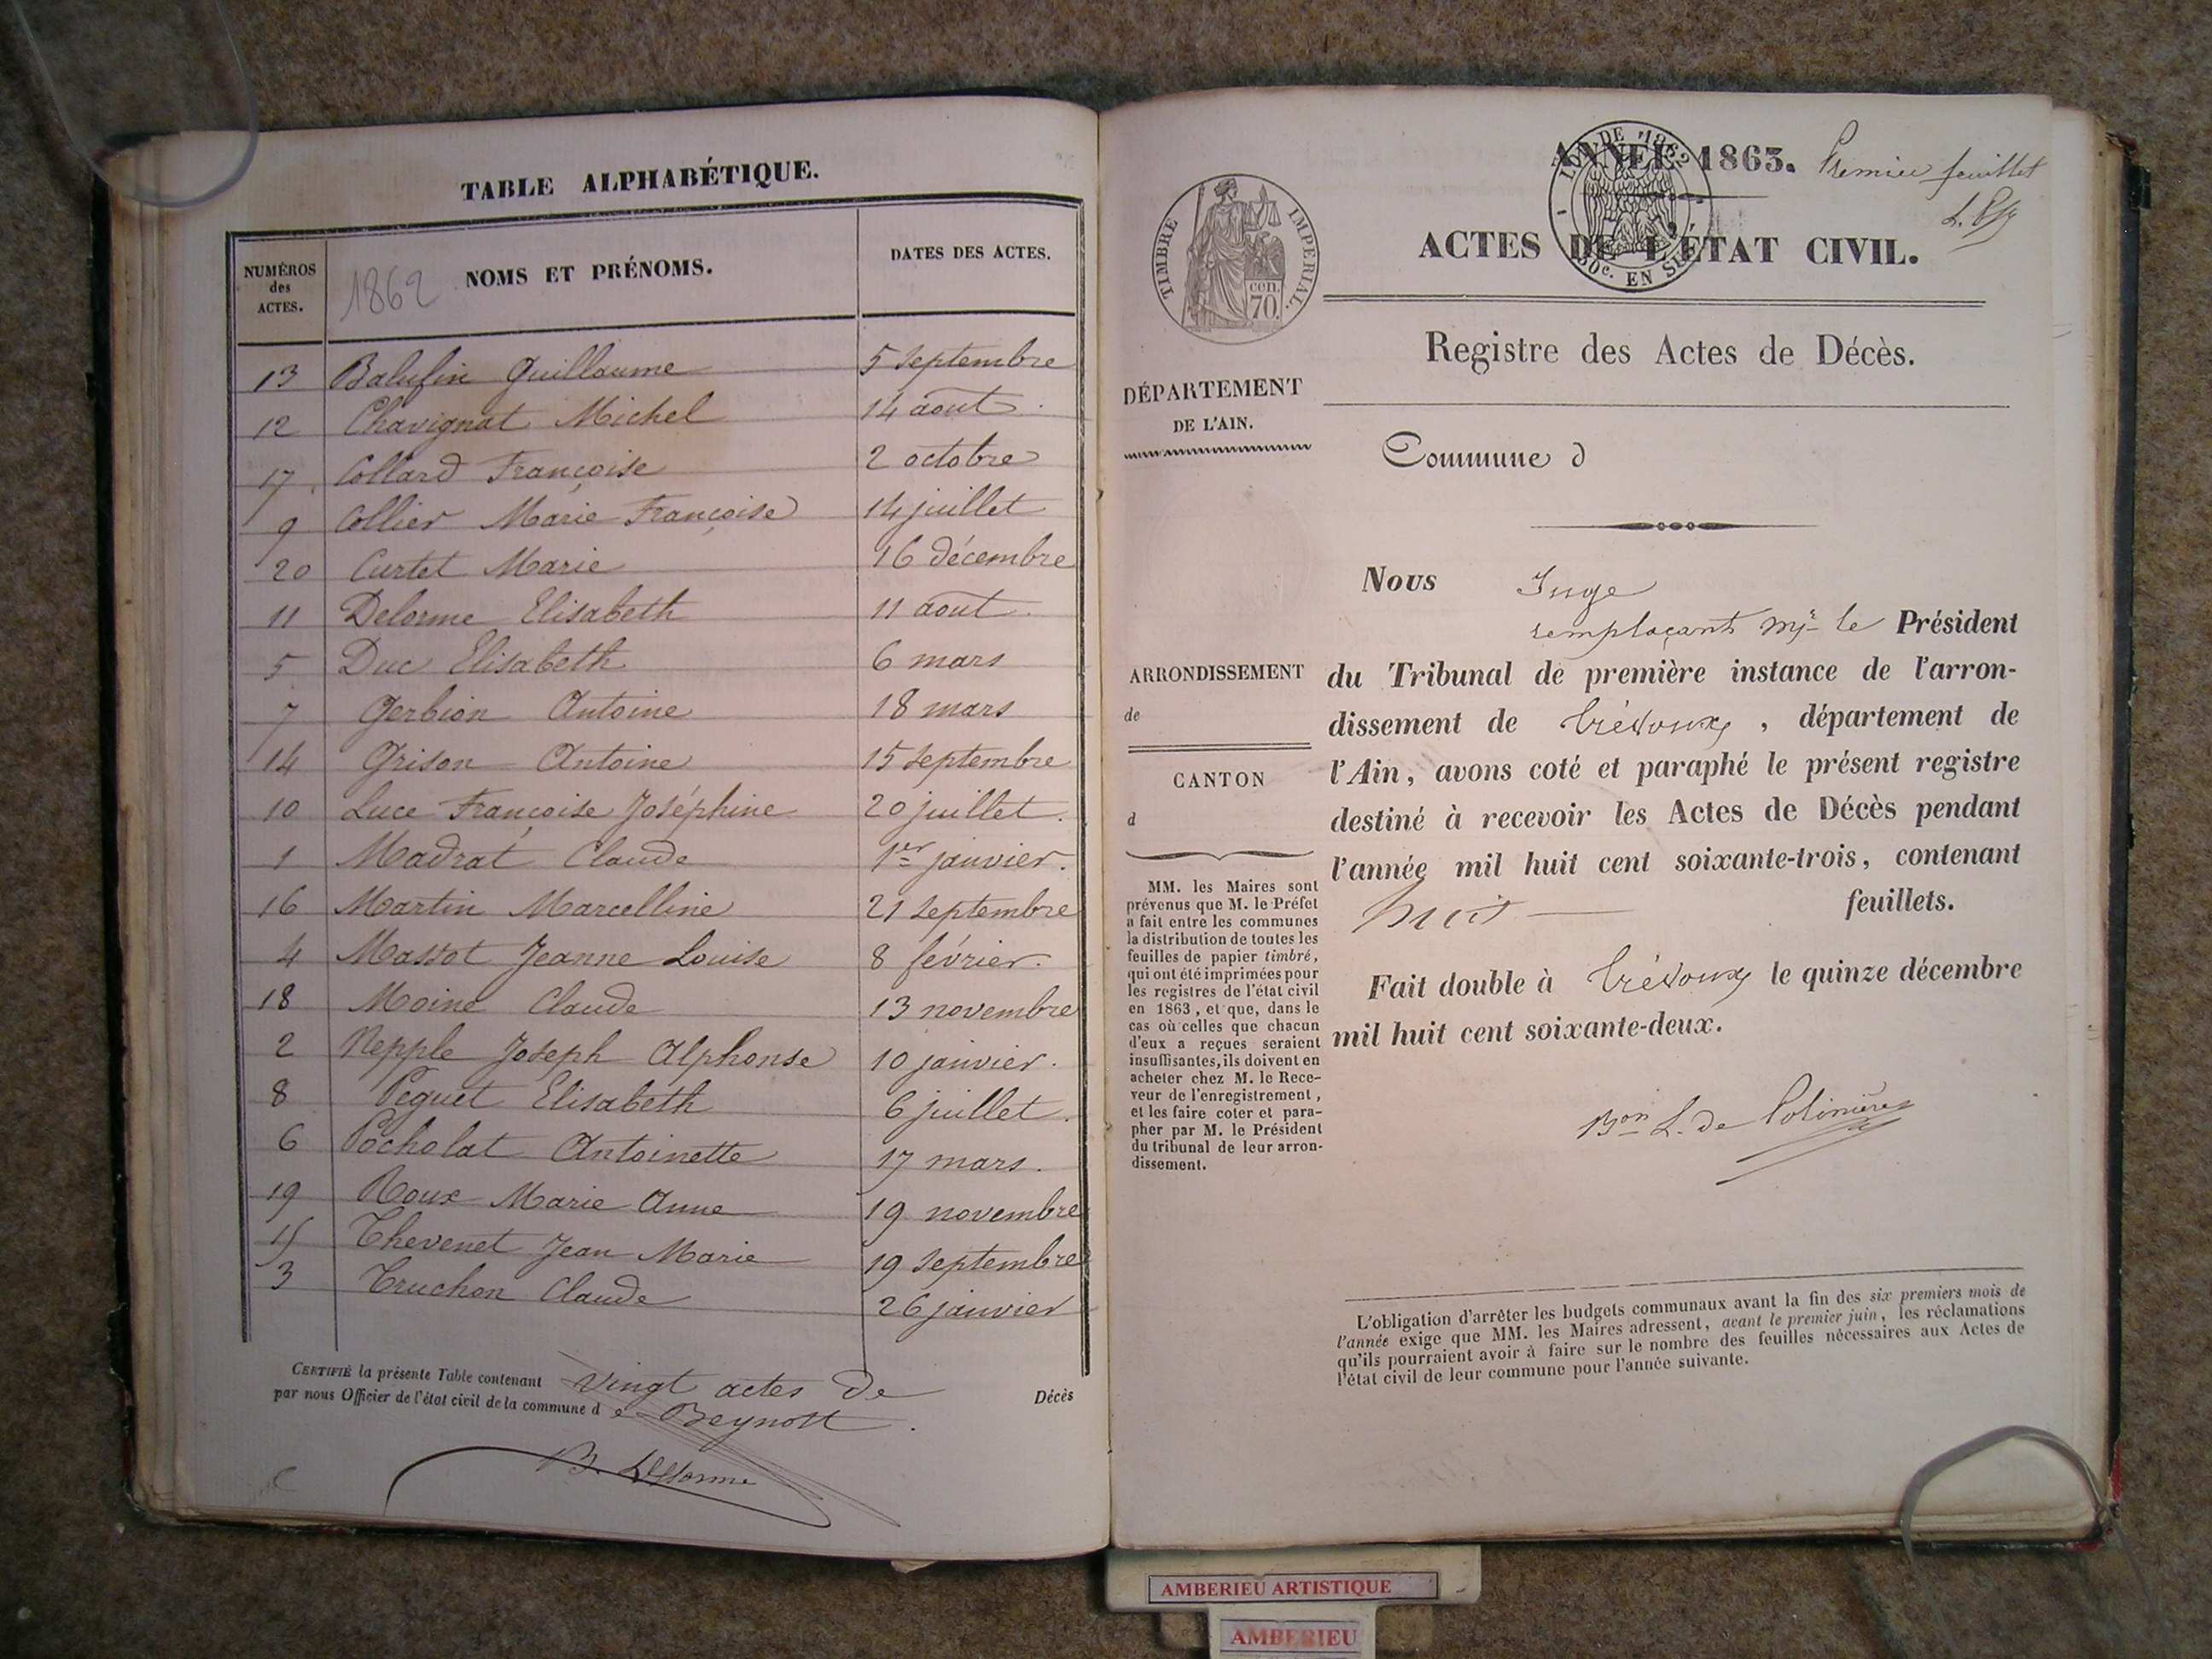 TABLE ALPHABÉTIQUE.
NUMÉROS des ACTES. 1862 NOMS ET PRÉNOMS. DATES DES ACTES.
13 Balufin Guillaume 5 septembre
12 Chavignat Michel 14 aout
17 Collard Françoise 2 octobre
9 Collier Marie Françoise 14 juillet
20 Curtet Marie 16 décembre
11 Delorme Elisabeth 11 aout
5 Duc Elisabeth 6 mars
7 Gerbion Antoine 18 mars
14 Grison Antoine 15 septembre
10 Luce Françoise Joséphine 20 juillet.
1 Madrat Claude 1er janvier.
16 Martin Marcelline 21 septembre
4 Massot Jeanne Louise 8 février.
18 Moine Claude 13 novembre
2 Nepple Joseph Alphonse 10 janvier.
8 Peguet Elisabeth 6 juillet.
6 Pocholat Antoinette 17 mars.
19 Roux Marie Anne 19 novembre
15 Thevenet Jean Marie 19 septembre
3 Truchon Claude 26 janvier
CERTIFIÉ la présente Table contenant vingt actes de Décès
par nous Officier de l'état civil de la commune d e Beynost.
B. Delorme
ANNÉE 1863. Premier feuillet
LOI DE 1862
50c. EN SUS
TIMBRE IMPERIAL.
cen. 70.
ACTES DE L'ÉTAT CIVIL.
Registre des Actes de Décès.
DÉPARTEMENT
DE L'AIN.
Commune d
ARRONDISSEMENT
de
CANTON
d
MM. les Maires sont
prévenus que M. le Préfet
a fait entre les communes
la distribution de toutes les
feuilles de papier timbré,
qui ont été imprimées pour
les registres de l'état civil
en 1863, et que, dans le
cas où celles que chacun
d'eux a reçues seraient
insuffisantes, ils doivent en
acheter chez M. le Rece-
veur de l'enregistrement,
et les faire coter et para-
pher par M. le Président
du tribunal de leur arron-
dissement.
Nous Juge
remplaçant Mr le Président
du Tribunal de première instance de l'arron-
dissement de Trévoux, département de
l'Ain, avons coté et paraphé le présent registre
destiné à recevoir les Actes de Décès pendant
l'année mil huit cent soixante-trois, contenant
huit feuillets.
Fait double à Trévoux le quinze décembre
mil huit cent soixante-deux.
Bon L. de Polinière
L'obligation d'arrêter les budgets communaux avant la fin des six premiers mois de
l'année exige que MM. les Maires adressent, avant le premier juin, les réclamations
qu'ils pourraient avoir à faire sur le nombre des feuilles nécessaires aux Actes de
l'état civil de leur commune pour l'année suivante.
AMBERIEU ARTISTIQUE
AMBERIEU